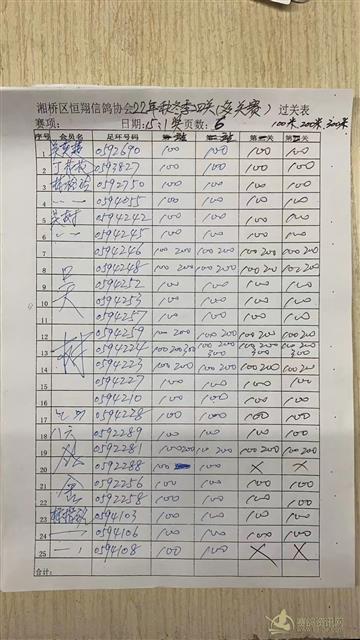 湘桥区恒翔信鸽协会22年秋冬季四关(多关赛)过关表
赛项: 日期:15:1奖页数:6 100米200米300米
序号 会员名 足环号码 第一关 第二关 第三关 第四关
1 0592690 100 100 100 100
2 0593827 100 100 100 100
3 0592750 100 100 100 100
4 0594055 100 100 100 100
5 吴树 0594242 100 100 100 100
6 0594245 100 100 100 100
7 0594246 100 200 100 200 100 200 100 200
8 0594248 100 200 100 200 100 200 100 200
9 吴 0594252 100 100 100 100
10 0594253 100 100 100 100
11 0594257 100 100 100 100
12 树 0594259 100 200 100 200 100 200 100 200
13 0594224 100 200 300 100 200 300 100 200 300 100 200 300
14 0594223 100 200 100 200 100 200 100 200
15 0594227 100 100 100 100
16 0594210 100 100 100 100
17 0594228 100 100 100 100
18 0592289 100 100 100 100
19 0592281 100 200 100 200 100 200 100 200
20 0592288 100 100 × ×
21 0592256 100 100 100 100
22 0592258 100 100 100 100
23 0594103 100 100 100 100
24 0594106 100 100 100 100
25 0594108 100 100 × ×
合计:
赛鸽资讯网